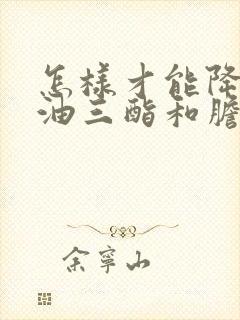 怎樣才能降
油三酯和膽
余寧山